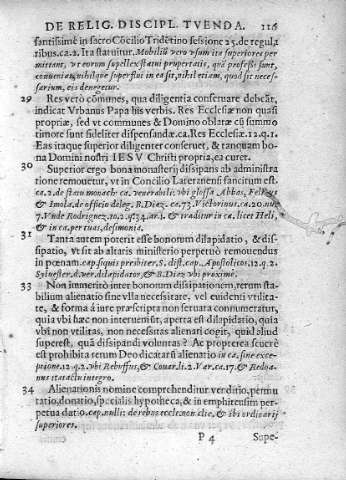 DE RELIG. DISCIPL. TVENDA. 116
santissimè in sacro Cōcilio Tridētino sessione 25. de regula
ribus. ca. 2. Ita statuitur. Mobiliū vero vsum ita superiores per
mittant, vt eorum supellex statui pupertatis, quā professi sunt,
conueniat, nihilque superflui in ea sit, nihil etiam, quod sit neces-
sarium, eis denegetur.
29 Res verò cōmunes, qua diligentia conseruare debeāt,
indicat Vrbanus Papa his verbis. Res Ecclesiæ non quasi
propriæ, sed vt communes & Domino oblatæ cū summo
timore sunt fideliter dispensandæ. ca. Res Ecclesiæ. 12. q. 1.
Eas itaque superior diligenter conseruet, & tanquam bo-
na Domini nostri IESV Christi propria, ea curet.
30 Superior ergo bona monasterij dissipans ab administra
tione remouetur, vt in Concilio Lateranensi sancitum est.
ca. 2. de statu monach. ca. venerabili: vbi glossa Abbas, Felinus
& Imola. de officio deleg. B. Diez. ca. 73. Victorinus. ca. 20. nu.
7. Vnde Rodriguez. to. 2. q. 34. ar. 1. & traditur in ca. licet Heli,
& in ca. per tuas, de simonia.
31 Tanta autem poterit esse bonorum dilapidatio, & dis-
sipatio, vt sit ab altaris ministerio perpetuò remouendus
in pœnam. cap. si quis presbiter. S. dist. cap. Apostolicos. 12. q. 2.
Syluester. d. ver. delapidator, & B. Diez vbi proximè.
33 Non immeritò inter bonorum dissipationem, rerum sta-
bilium alienatio sine vlla necessitate, vel euidenti vtilita-
te, & forma à iure præscripta non seruata connumeratur,
quia vbi hæc non interuenit, aperta est dilapidatio, quia
vbi non vtilitas, non necessitas alienari cogit, quid aliud
superest, quā dissipandi voluntas? Ac propterea seuerè
est prohibita rerum Deo dicatarū alienatio in ca. sine exce-
ptione. 12. q. 2. vbi Rebuffus, & Couar. li. 2. Var. ca. 17. & Redoa-
nus tractatu integro.
34 Alienationis nomine comprehenditur venditio, permu
tatio, donatio, specialis hypotheca, & in emphiteusim per-
petua datio. cap. nulli: de rebus eccles. non alie. & ibi ordinarij
superiores.
P 4 Supe-